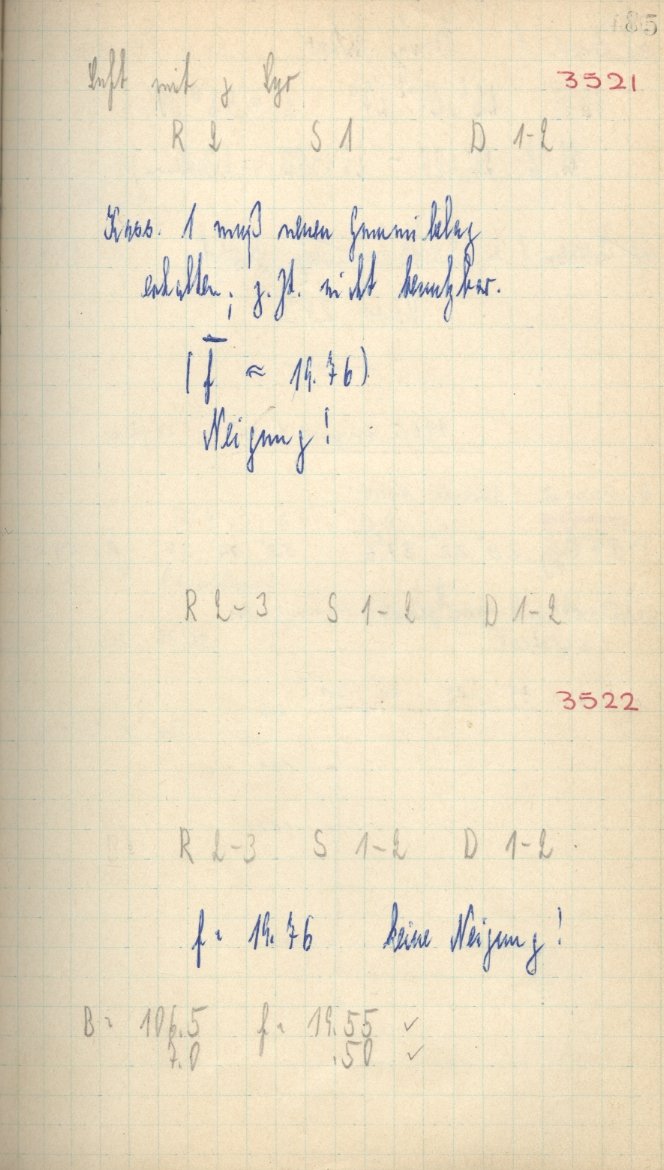 185
Luft mit γ Lyr 3521
R 2 S 1 D 1-2
Kass. 1 muß neuen Gummibelag
erhalten; z. Zt. nicht benutzbar.
(f̅ ≈ 19.76)
Neigung!
R 2-3 S 1-2 D 1-2
3522
R 2-3 S 1-2 D 1-2
f = 19.76 keine Neigung!
B = 106.5 f = 19.55 ✓
7.0 .50 ✓